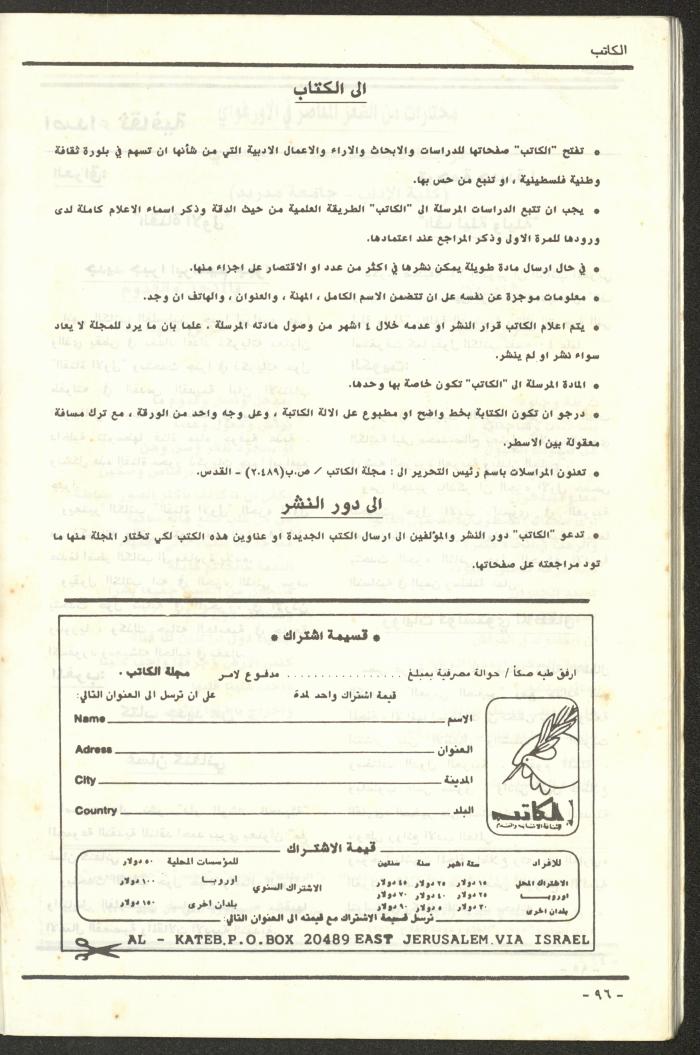 الكاتب
الى الكتاب
• تفتح "الكاتب" صفحاتها للدراسات والابحاث والاراء والاعمال الادبية التي من شأنها ان تسهم في بلورة ثقافة
وطنية فلسطينية ، او تنبع من حس بها.
• يجب ان تتبع الدراسات المرسلة الى "الكاتب" الطريقة العلمية من حيث الدقة وذكر اسماء الاعلام كاملة لدى
ورودها للمرة الاولى وذكر المراجع عند اعتمادها.
• في حال ارسال مادة طويلة يمكن نشرها في اكثر من عدد او الاقتصار على اجزاء منها.
• معلومات موجزة عن نفسه على ان تتضمن الاسم الكامل ، المهنة ، والعنوان ، والهاتف ان وجد.
• يتم اعلام الكاتب قرار النشر او عدمه خلال ٤ اشهر من وصول مادته المرسلة . علما بان ما يرد للمجلة لا يعاد
سواء نشر او لم ينشر.
• المادة المرسلة الى "الكاتب" تكون خاصة بها وحدها.
• درجو ان تكون الكتابة بخط واضح او مطبوع على الالة الكاتبة ، وعلى وجه واحد من الورقة ، مع ترك مسافة
معقولة بين الاسطر.
• تعنون المراسلات باسم رئيس التحرير الى : مجلة الكاتب / ص.ب(٢٠٤٨٩) - القدس.
الى دور النشر
• تدعو "الكاتب" دور النشر والمؤلفين الى ارسال الكتب الجديدة او عناوين هذه الكتب لكي تختار المجلة منها ما
تود مراجعته على صفحاتها.
• قسيمة اشتراك •
ارفق طيه صكاً / حوالة مصرفية بمبلغ ................ مدفوع لامر مجلة الكاتب .
قيمة اشتراك واحد لمدة على ان ترسل الى العنوان التالي:
الاسم Name
العنوان Adress
المدينة City
البلد Country
الكاتب
قيمة الاشتراك
للافراد ستة اشهر سنة سنتين للمؤسسات المحلية ٥٠ دولار
الاشتراك المحلي ١٥ دولار ٢٥ دولار ٤٥ دولار الاشتراك السنوي اوروبا ١٠٠ دولار
اوروبا ٢٥ دولار ٤٠ دولار ٧٠ دولار
بلدان اخرى ٣٠ دولار ٥٠ دولار ٩٠ دولار بلدان اخرى ١٥٠ دولار
ترسل قسيمة الاشتراك مع قيمته الى العنوان التالي:
AL - KATEB,P.O.BOX 20489 EAST JERUSALEM.VIA ISRAEL
- ٩٦ -